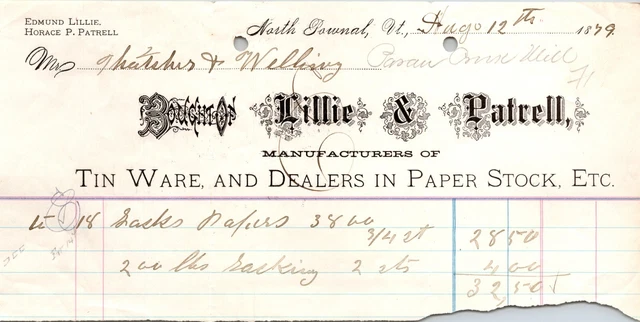 Edmund Lillie.
Horace P. Patrell
North Pownal, Vt., Aug 12th 1879
Mr Thatcher & Welling
Bought of Lillie & Patrell,
Manufacturers of
Tin Ware, and Dealers in Paper Stock, Etc.
18 Sacks Papers 3800
3/4 ct 28 50
200 lbs Sacking 2 cts 4 00
32,50